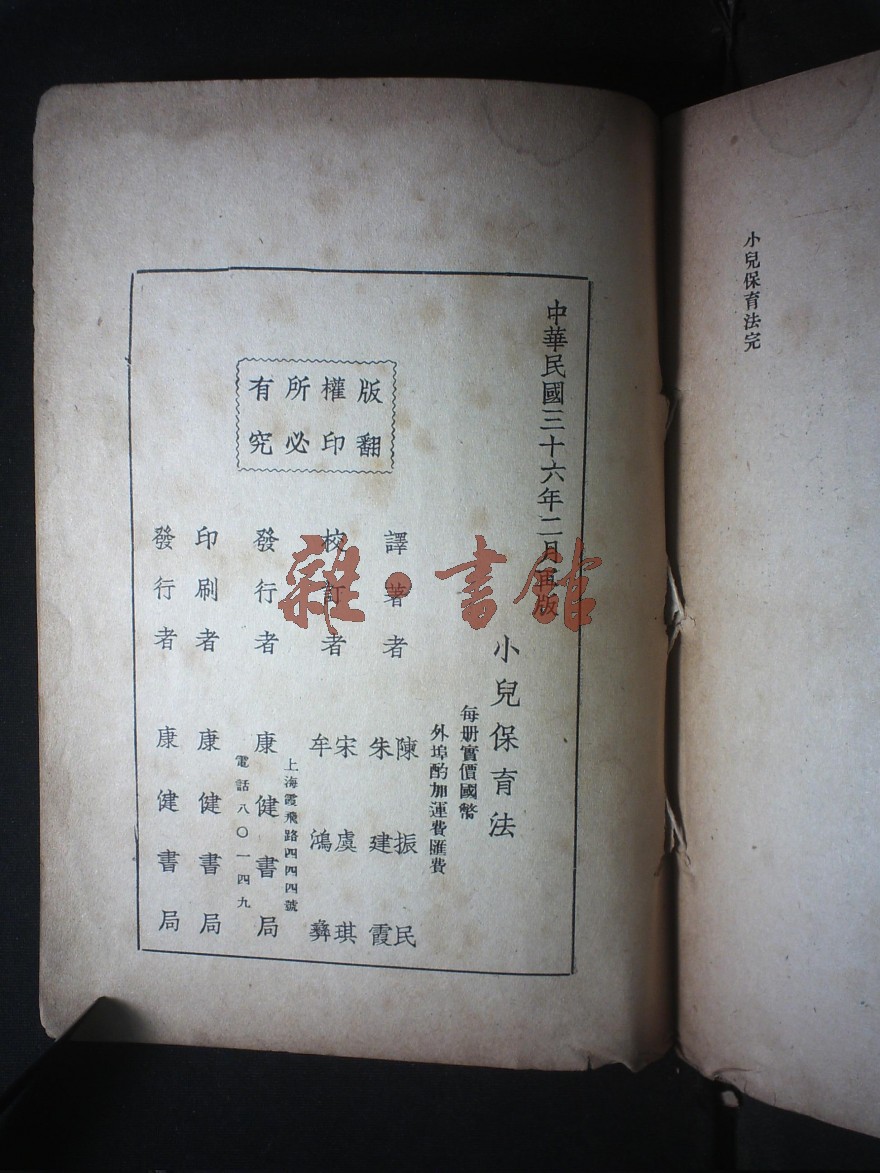 小兒保育法完
中華民國三十六年二月再版
小兒保育法
每册實價國幣
外埠酌加運費匯費
譯著者 陳振民
朱建霞
校訂者 宋虞琪
牟鴻彝
發行者 康健書局
上海霞飛路四四四號
電話八〇一四九
印刷者 康健書局
發行者 康健書局
版權所有
翻印必究
雜·書館